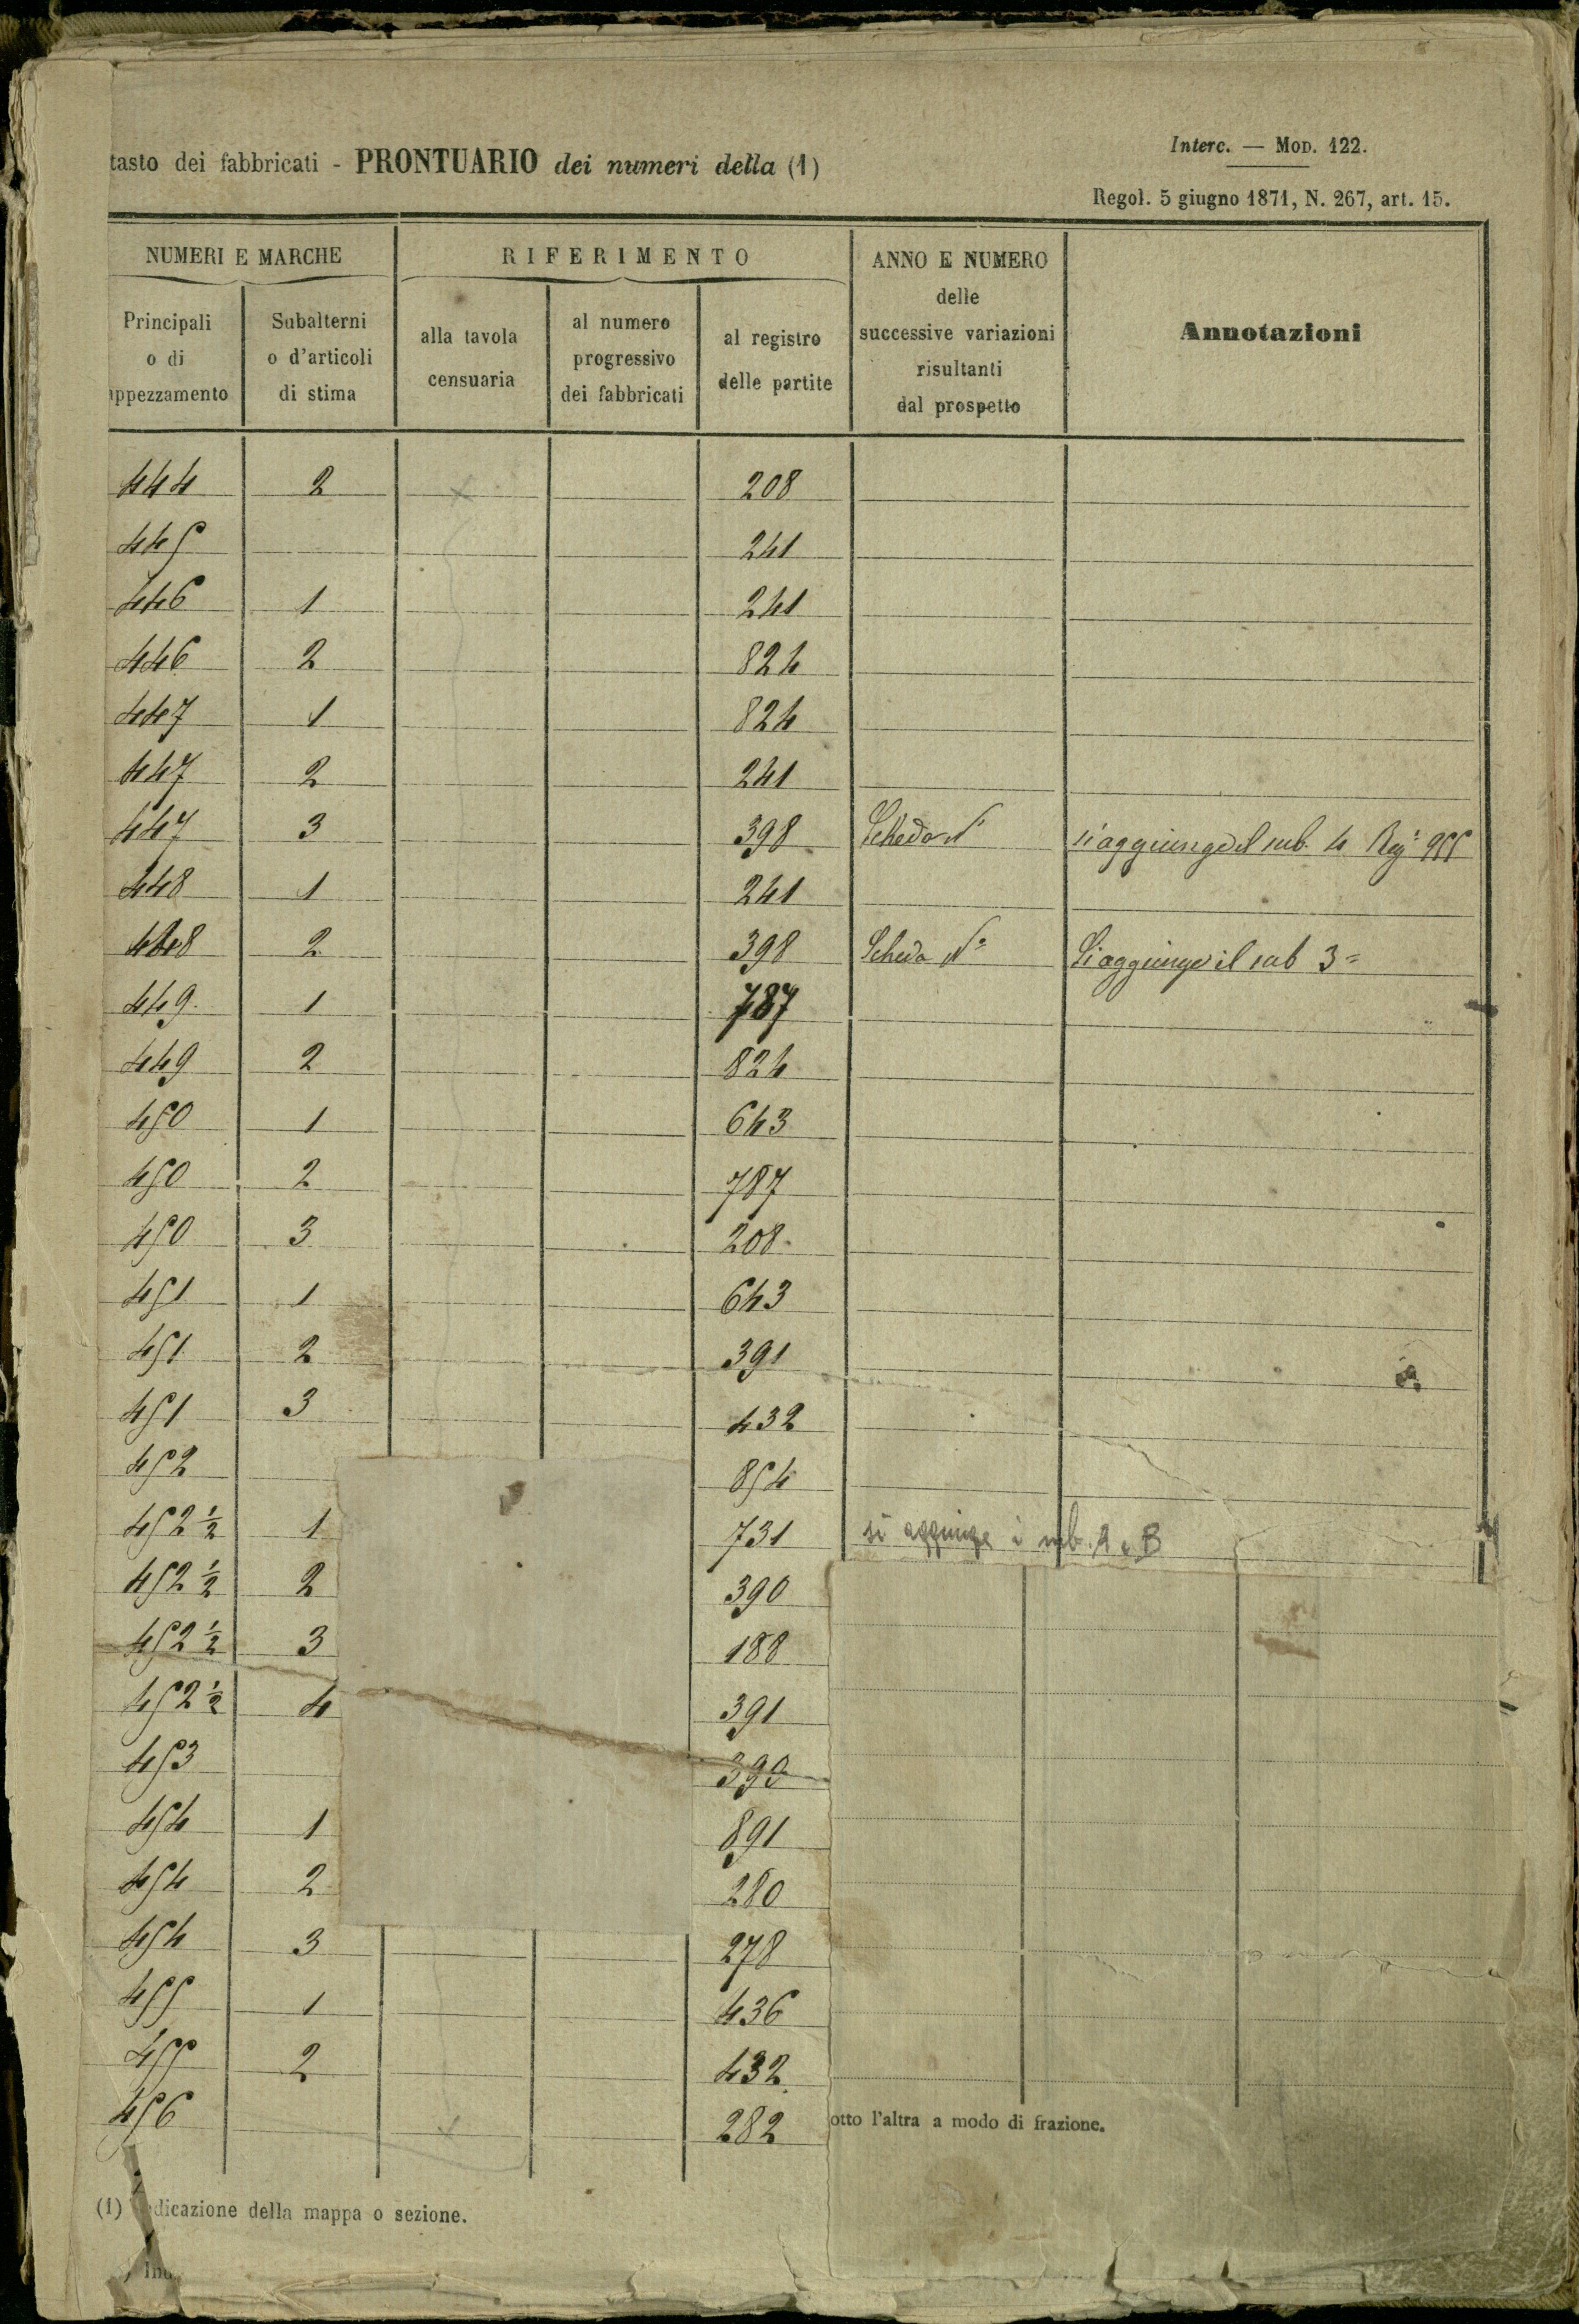 tasto dei fabbricati - PRONTUARIO dei numeri della (1)
Interc. — MOD. 122.
Regol. 5 giugno 1871, N. 267, art. 15.
NUMERI E MARCHE
RIFERIMENTO
ANNO E NUMERO
delle
successive variazioni
risultanti
dal prospetto
Annotazioni
Principali
o di
appezzamento
Subalterni
o d'articoli
di stima
alla tavola
censuaria
al numero
progressivo
dei fabbricati
al registro
delle partite
444 2 208
445 241
446 1 241
446 2 824
447 1 824
447 2 241
447 3 398 Scheda N° si aggiunge il sub. 4 Reg: 955
448 1 241
448 2 398 Scheda N° Si aggiunge il sub 3=
449 1 787
449 2 824
450 1 643
450 2 787
450 3 208
451 1 643
451 2 391
451 3 432
452 854
452 1/2 1 731 si aggiunge i sub. 2 e 3
452 1/2 2 390
452 1/2 3 188
452 1/2 4 391
453
454 1 891
454 2 280
454 3 278
455 1 436
455 2 432
456 282
otto l'altra a modo di frazione.
(1) dicazione della mappa o sezione.